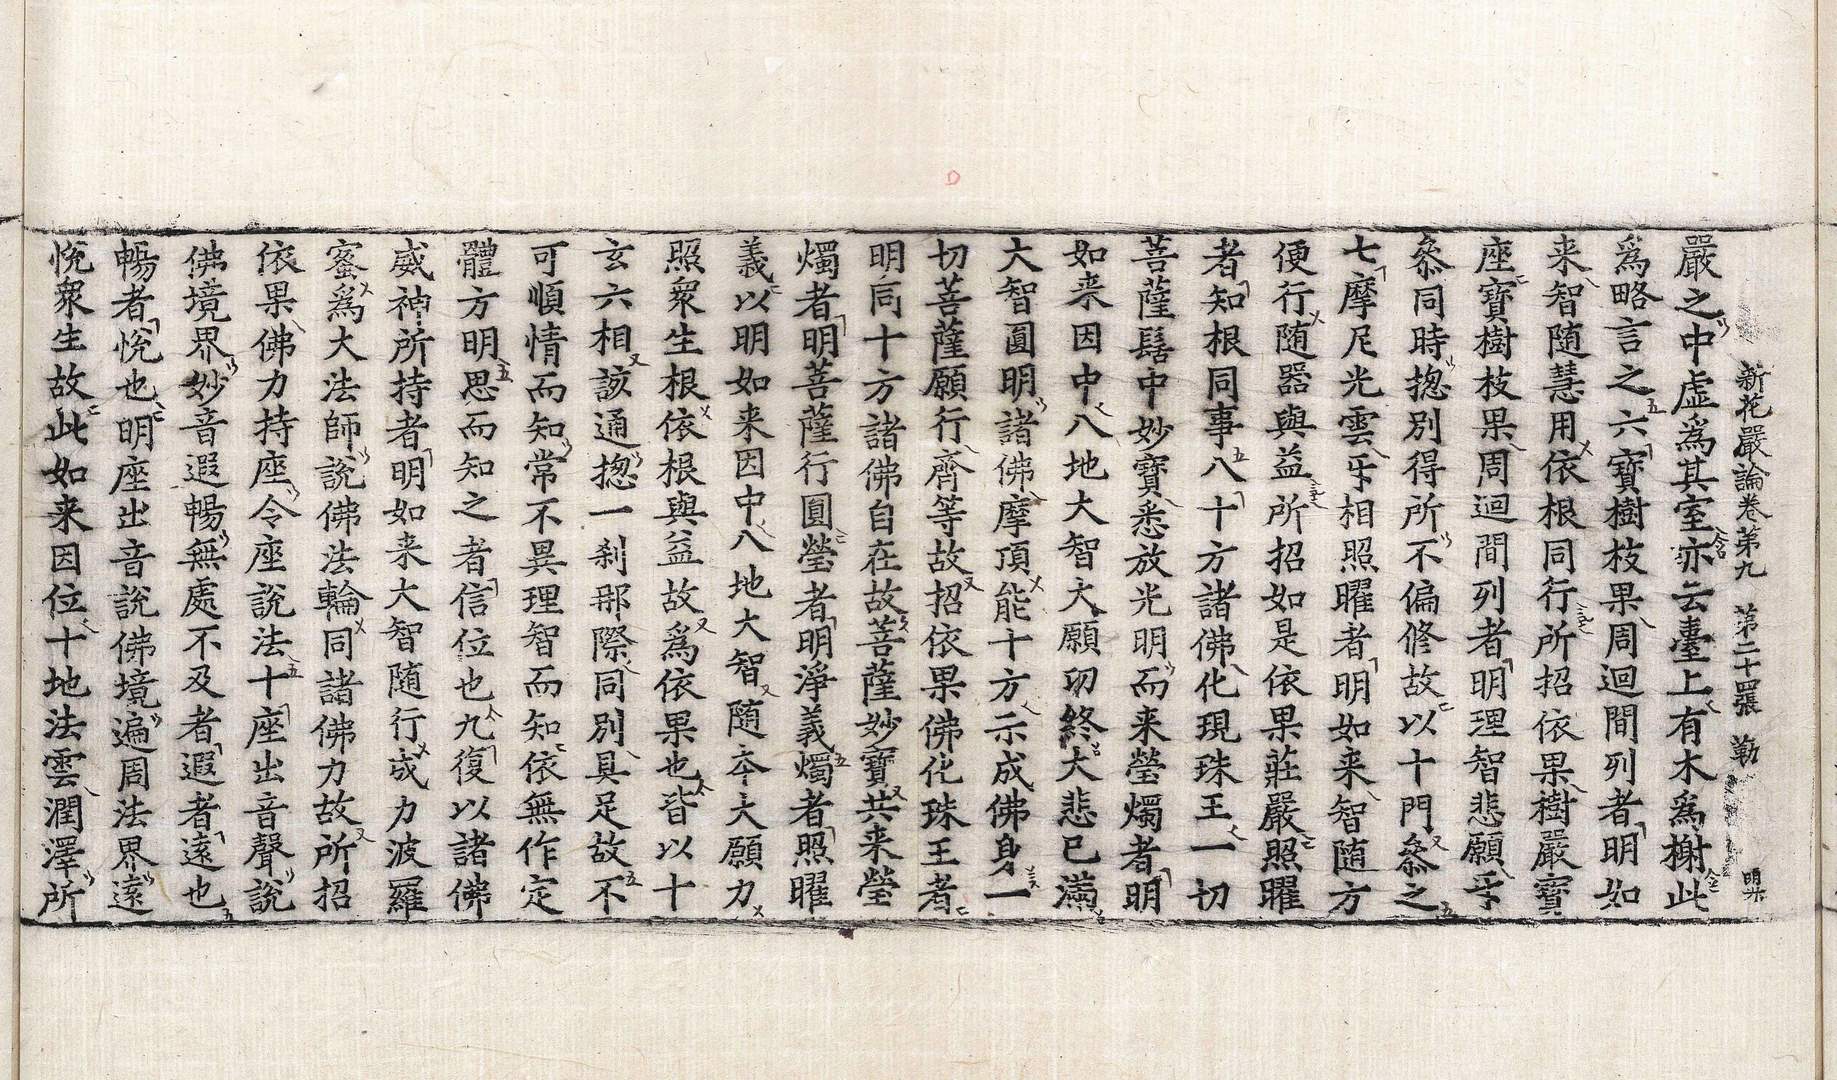 新花嚴論卷第九　第二十四張　勒
嚴之中虚爲其室亦云臺上有木爲榭此
爲略言之六寶樹枝果周迴間列者明如
来智随慧用依根同行所招依果樹嚴寶
座寶樹枝果周迴間列者明理智悲願㸦
叅同時揔別得所不偏修故以十門叅之
七摩尼光雲㸦相照曜者明如来智随方
便行随器與益所招如是依果莊嚴照曜
者知根同事八十方諸佛化現珠王一切
菩薩髻中妙寶悉放光明而来瑩燭者明
如来因中八地大智大願功終大悲已滿
大智圓明諸佛摩頂能十方示成佛身一
切菩薩願行齊等故招依果佛化珠王者
明同十方諸佛自在故菩薩妙寶共来瑩
燭者明菩薩行圓瑩者明淨義燭者照曜
義以明如来因中八地大智随夲大願力
照衆生根依根與益故爲依果也皆以十
玄六相該通揔一刹那際同別具足故不
可順情而知常不異理智而知依無作定
體方明思而知之者信位也九復以諸佛
威神所持者明如来大智随行成力波羅
蜜爲大法師說佛法輪同諸佛力故所招
依果佛力持座令座說法十座出音聲說
佛境界妙音遐暢無處不及者遐者遠也
暢者悅也明座出音說佛境遍周法界遠
悅衆生故此如来因位十地法雲潤澤所